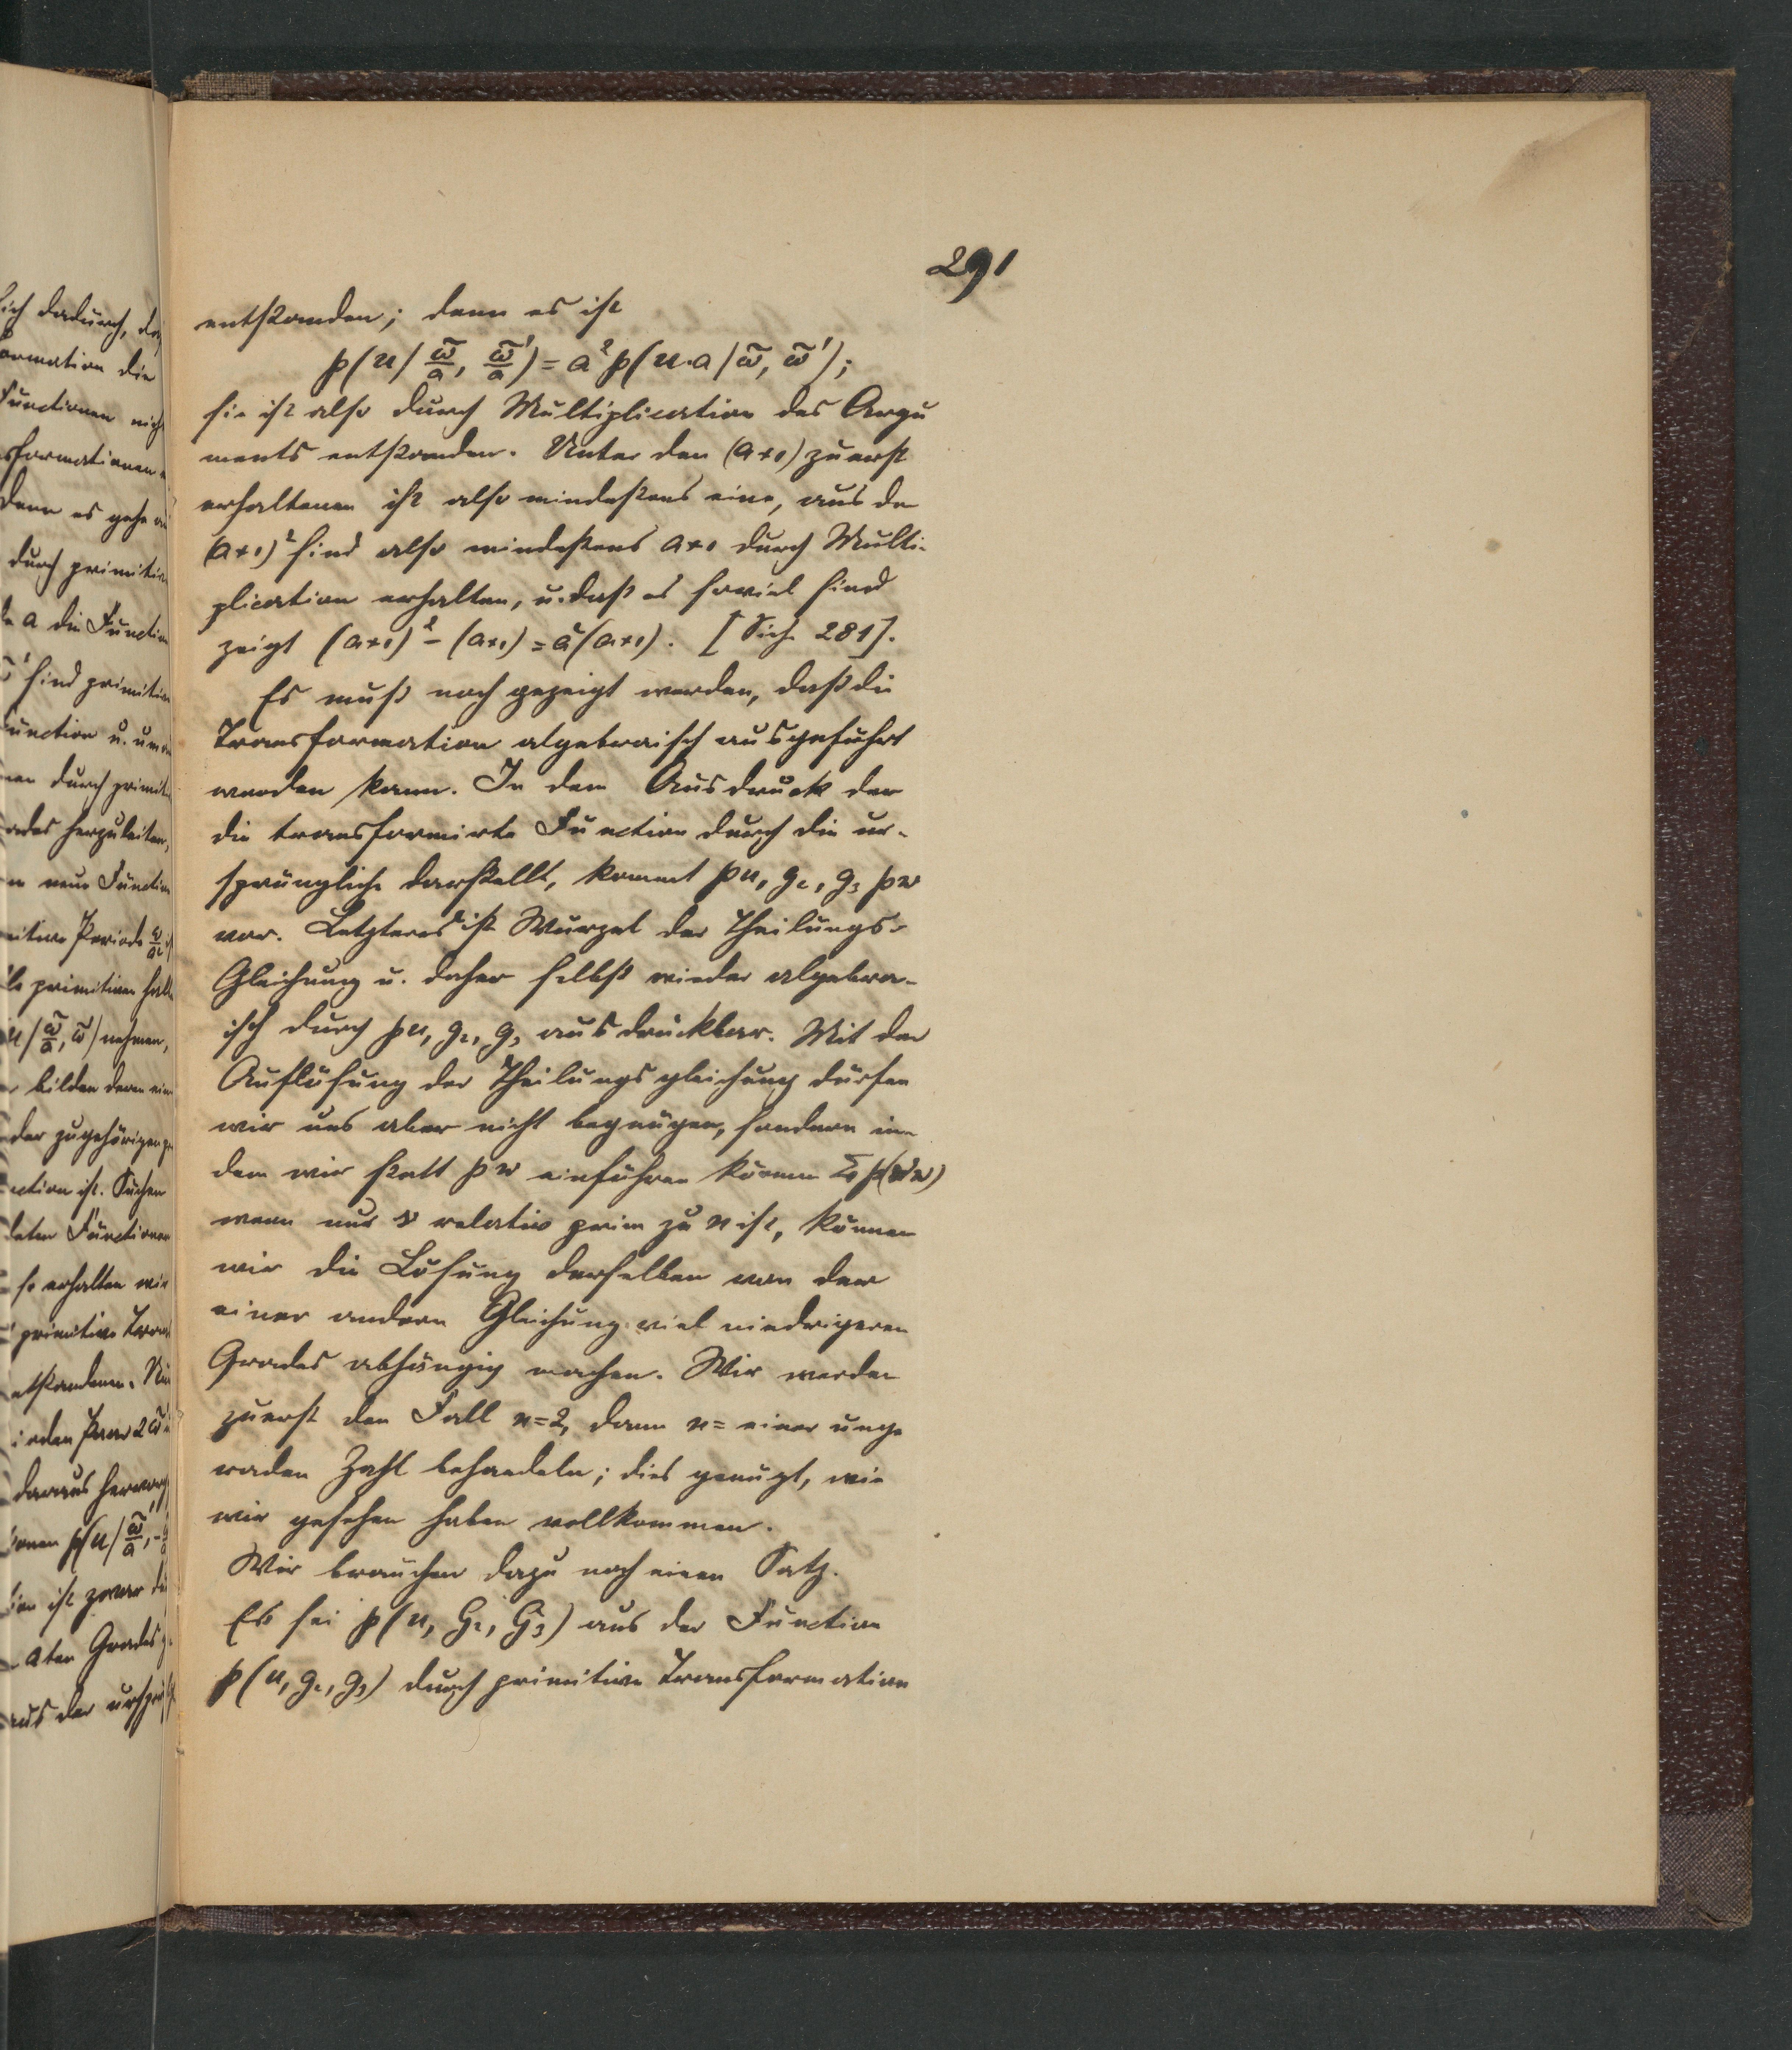 291
entstanden; denn es ist
℘(u/ ω̃/a, ω̃'/a) = a² ℘(u·a/ω̃, ω̃');
sie ist also durch Multiplication des Argu
ments entstanden. Unter den (a+1) zuerst
erhaltenen ist also mindestens eine, aus den
(a+1)² sind also mindestens a+1 durch Multi-
plication erhalten, u. daß es soviel sind
zeigt (a+1)² - (a+1) = a(a+1). [Sieh 281].
Es muß noch gezeigt werden, daß die
Transformation algebraisch ausgeführt
werden kann. In dem Ausdruck der
die transformirte Function durch die ur-
sprüngliche darstellt, kommt ℘u, g₂, g₃ ℘w
vor. Letzteres ist Wurzel der Theilungs-
Gleichung u. daher selbst wieder algebra-
isch durch ℘u, g₂, g₃ ausdrückbar. Mit der
Auflösung der Theilungsgleichung dürfen
wir uns aber nicht begnügen, sondern in-
dem wir statt ℘w einführen können Σ ℘(sw)
wenn nur s relativ prim zu n ist, können
wir die Lösung derselben von der
einer andern Gleichung viel niedrigeren
Grades abhängig machen. Wir werden
zuerst den Fall n=2, dann n= einer unge
raden Zahl behandeln; dies genügt, wie
wir gesehen haben vollkommen.
Wir brauchen dazu noch einen Satz.
Es sei ℘(u, G₂, G₃) aus der Function
℘(u, g₂, g₃) durch primitive Transformation